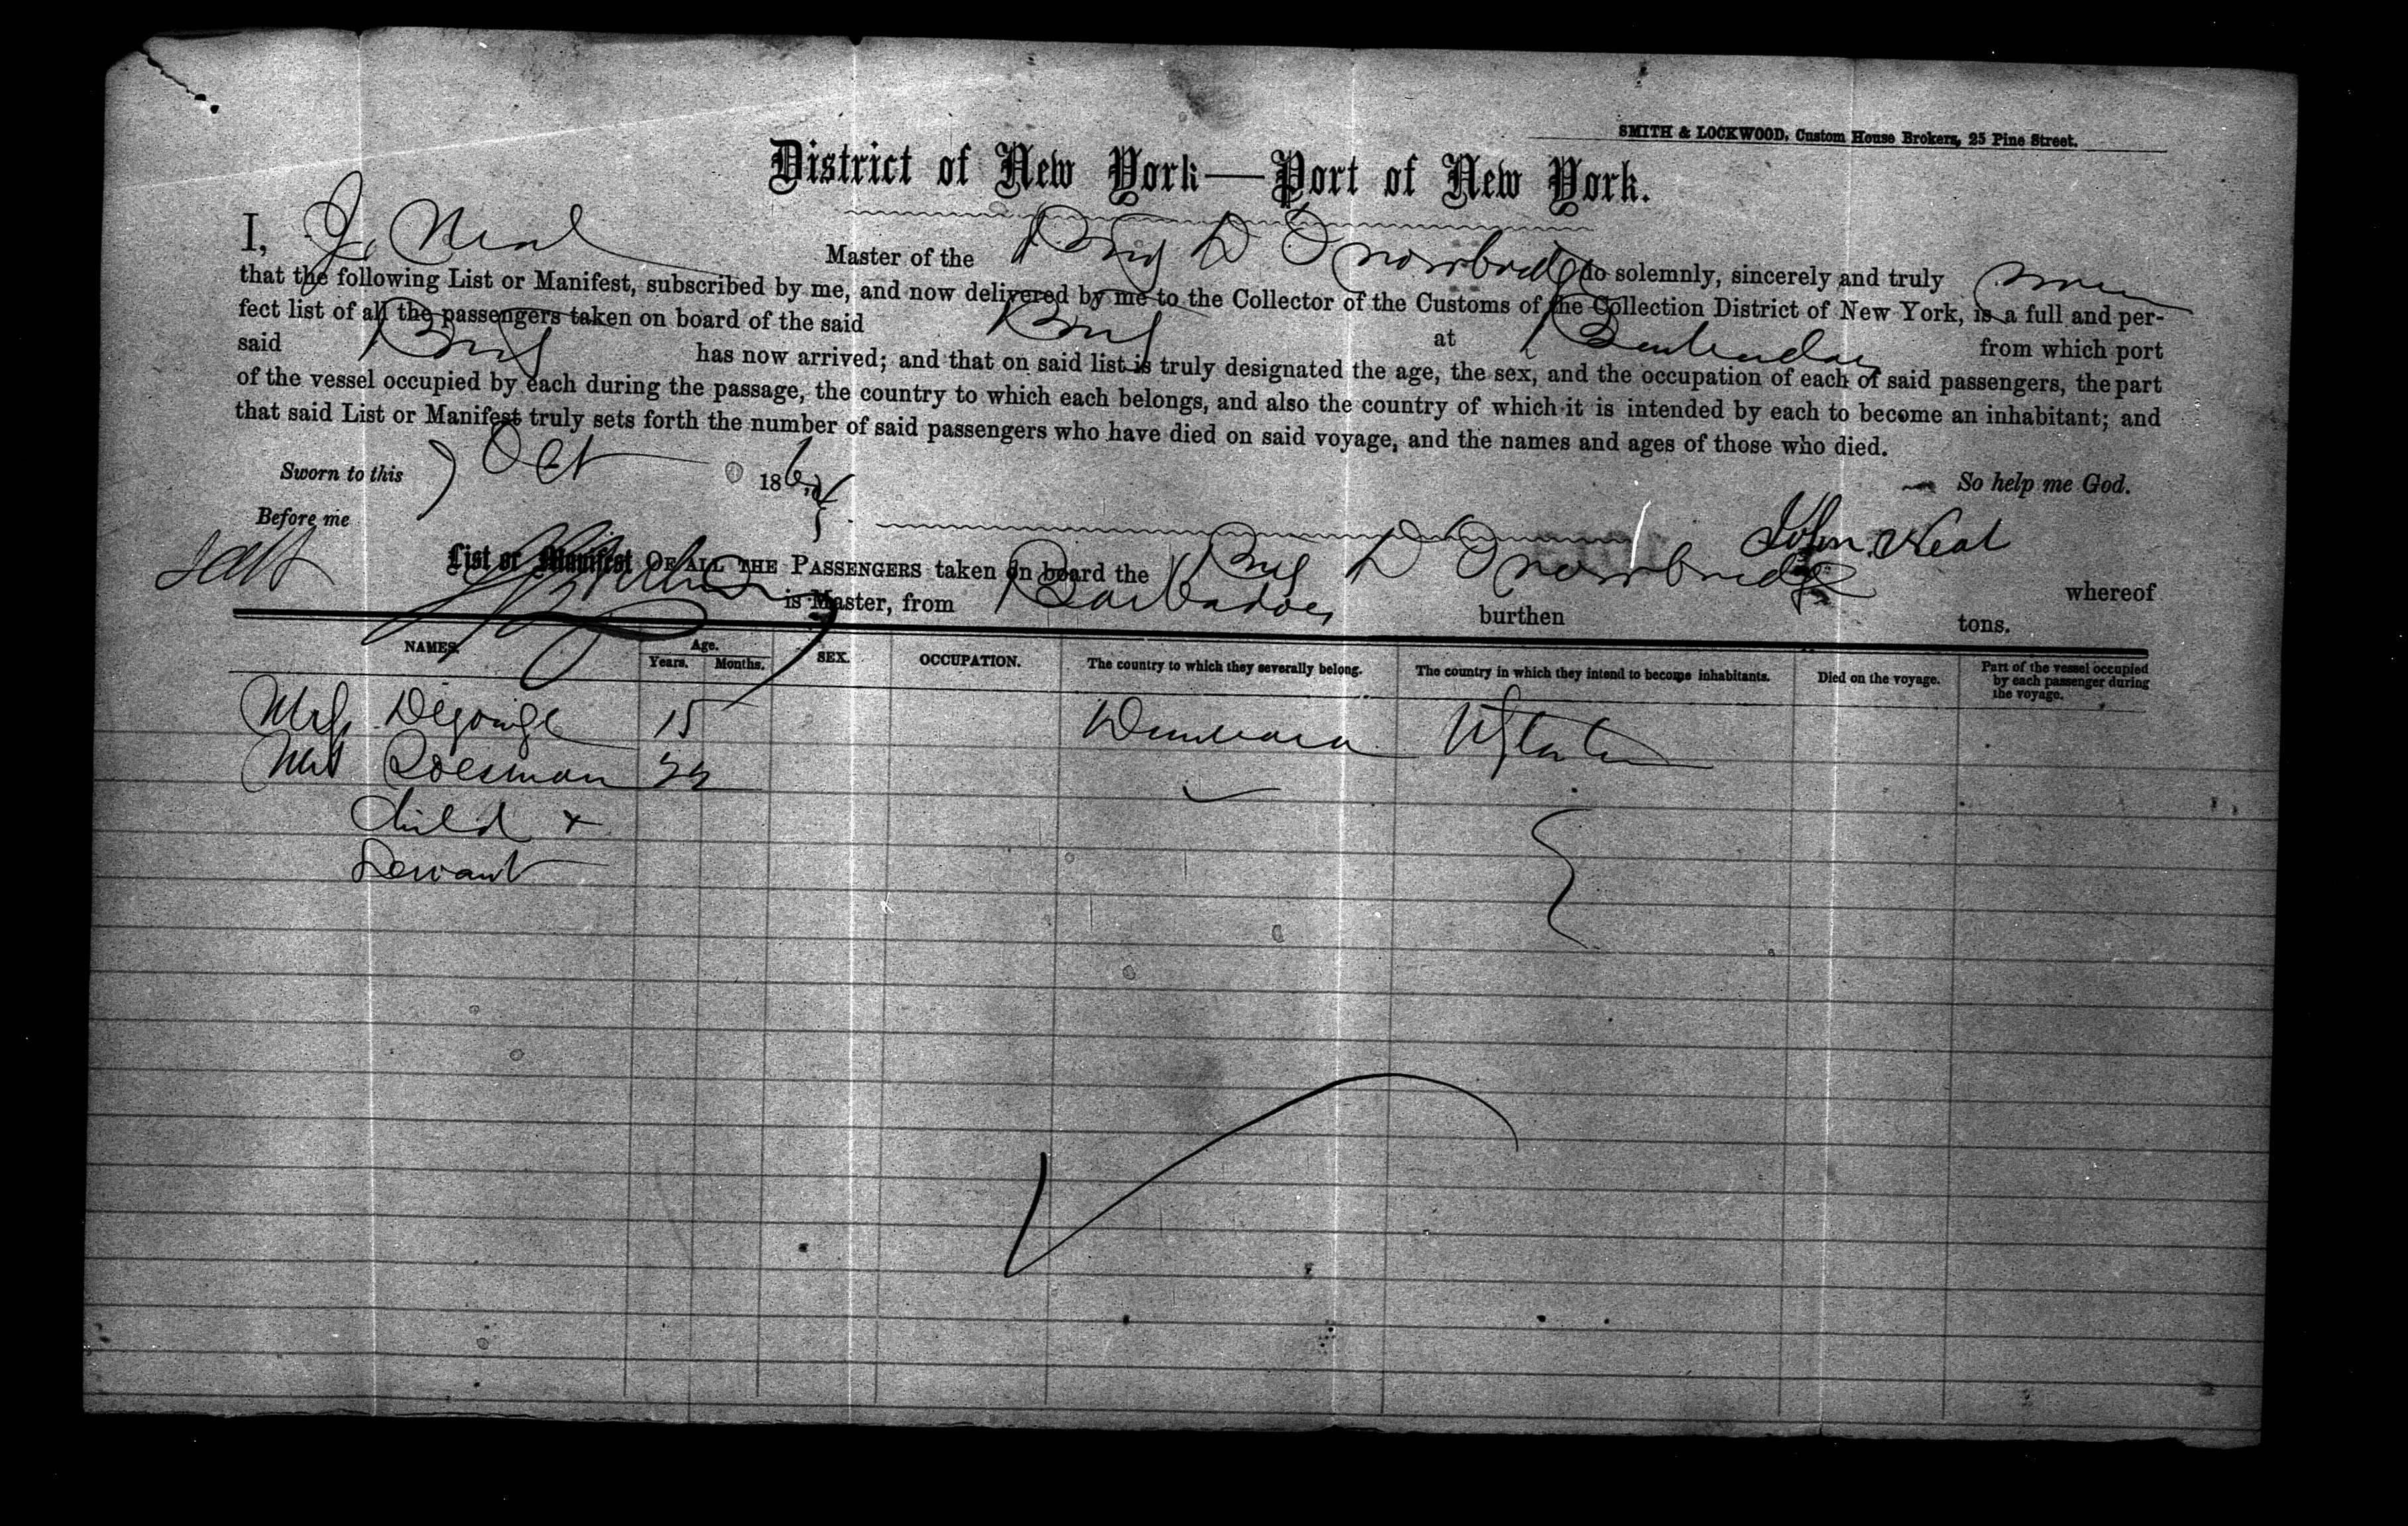 SMITH & LOCKWOOD, Custom House Brokers, 25 Pine Street.
District of New York—Port of New York.
I, J. Neal Master of the Brig D Trowbridge do solemnly, sincerely and truly swear
that the following List or Manifest, subscribed by me, and now delivered by me to the Collector of the Customs of the Collection District of New York, is a full and per-
fect list of all the passengers taken on board of the said Brig at Barbadoes from which port
said Brig has now arrived; and that on said list is truly designated the age, the sex, and the occupation of each of said passengers, the part
of the vessel occupied by each during the passage, the country to which each belongs, and also the country of which it is intended by each to become an inhabitant; and
that said List or Manifest truly sets forth the number of said passengers who have died on said voyage, and the names and ages of those who died.
Sworn to this 7 Oct 186 So help me God.
Before me John Neal
List or Manifest OF ALL THE PASSENGERS taken on board the Brig D Trowbridge whereof
is Master, from Barbadoes burthen tons.
NAMES. Age. Years. Months. SEX. OCCUPATION. The country to which they severally belong. The country in which they intend to become inhabitants. Died on the voyage. Part of the vessel occupied by each passenger during the voyage.
Degonge 15 Demerara U States
Mrs
Child +
Servant